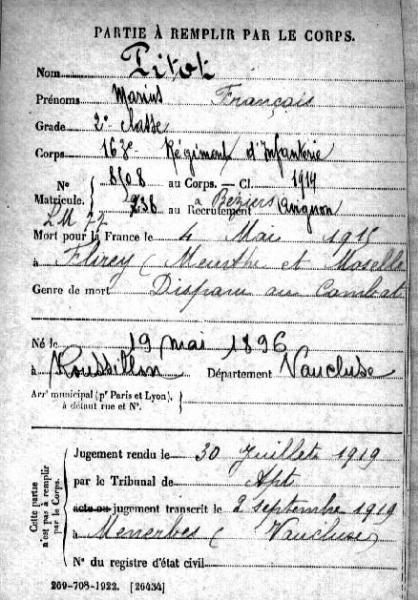 PARTIE À REMPLIR PAR LE CORPS.
Nom Pitot
Prénoms Marius François
Grade 2e classe
Corps 163e Régiment d'Infanterie
N° 8108 au Corps. — Cl. 1914
Matricule. 236 au Recrutement Avignon
à Béziers
LM 77
Mort pour la France le 4 Mai 1915
à Flirey (Meurthe et Moselle
Genre de mort Disparu au Combat
Né le 19 mai 1896
à Roussillon Département Vaucluse
Arrt municipal (pr Paris et Lyon),
à défaut rue et N°.
Cette partie
n'est pas à remplir
par le Corps.
Jugement rendu le 30 Juillets 1919
par le Tribunal de Apt
acte ou jugement transcrit le 2 septembre 1919
à Menerbes (Vaucluse)
N° du registre d'état civil
269-708-1922. [26434]